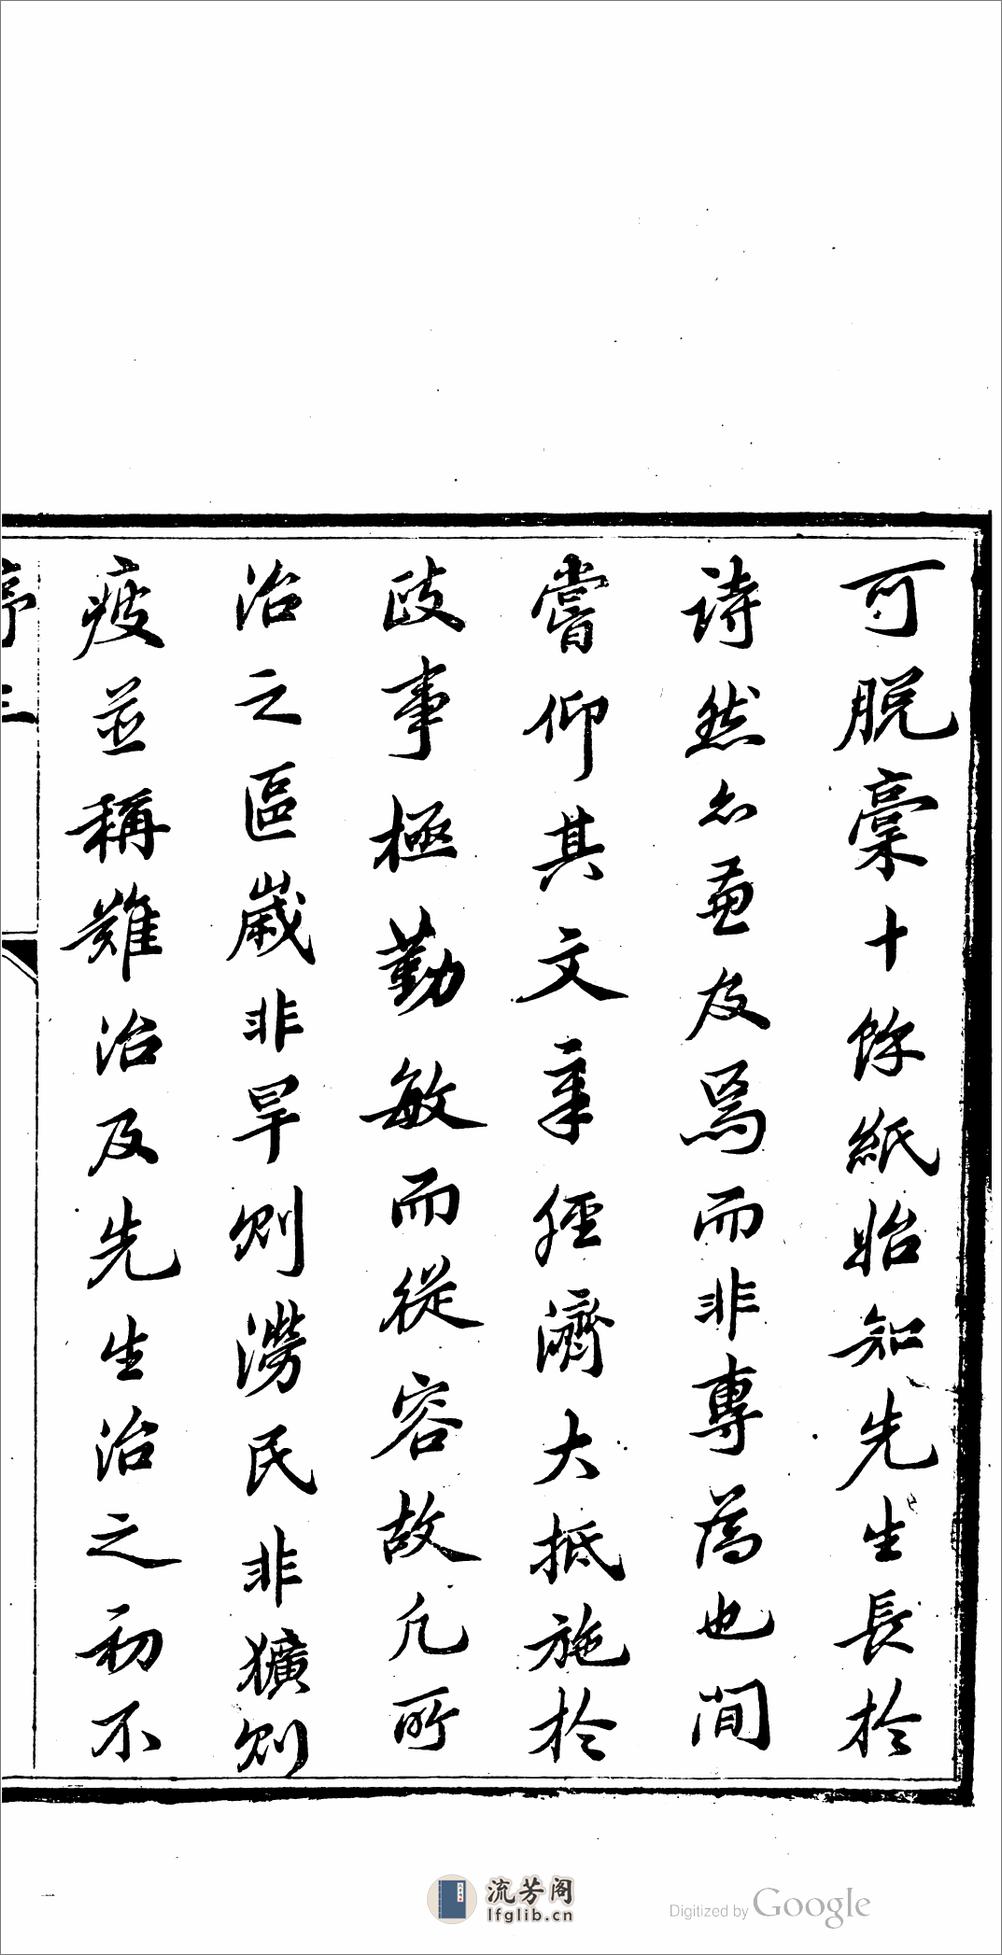 可脫稾十餘紙始知先生長於
詩然亦兼及焉而非專為也間
嘗仰其文章經濟大抵施於
政事極勤敏而從容故凡所
治之區歲非旱則澇民非獷則
疲並稱難治及先生治之初不
序 三
流芳阁
lfglib.cn
Digitized by Google